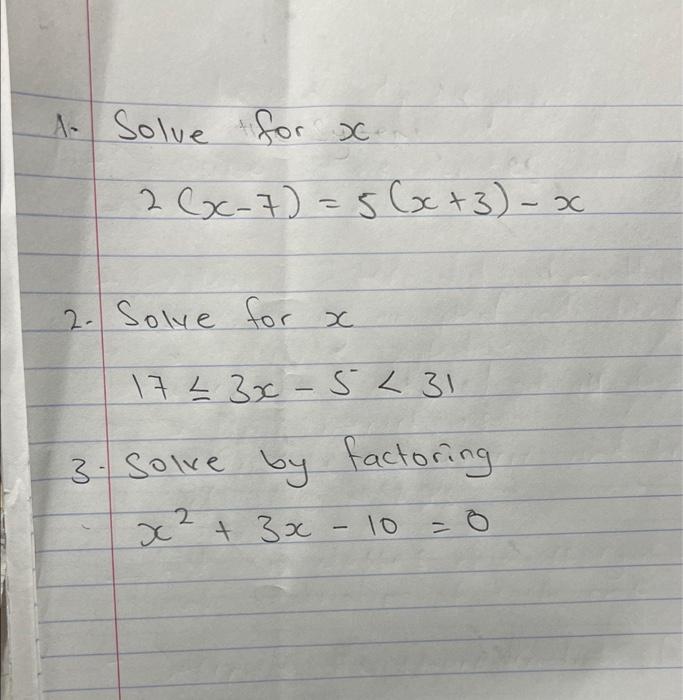 1. Solve for x
2(x-7) = 5(x+3) - x
2. Solve for x
17 ≤ 3x - 5 < 31
3. Solve by factoring
x² + 3x - 10 = 0